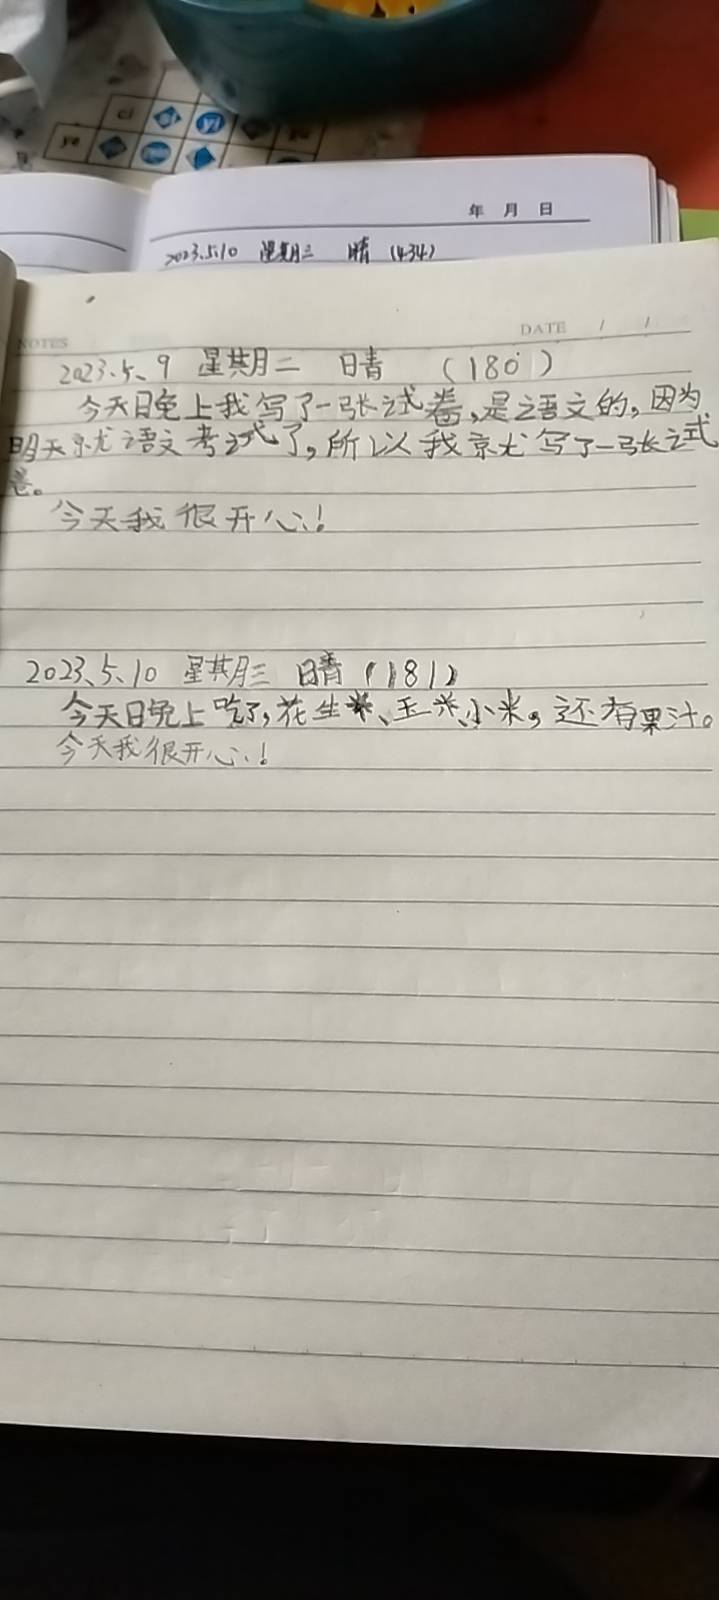 ci yi
ye
年 月 日
2023.5.10 星期三 晴 (434)
NOTES DATE / /
2023.5.9 星期二 晴 (180)
今天晚上我写了一张试卷,是语文的,因为
明天就语文考试了,所以我就写了一张试
卷。
今天我很开心!
2023.5.10 星期三 晴 (181)
今天晚上吃了,花生米、玉米、小米,还有果汁。
今天我很开心!